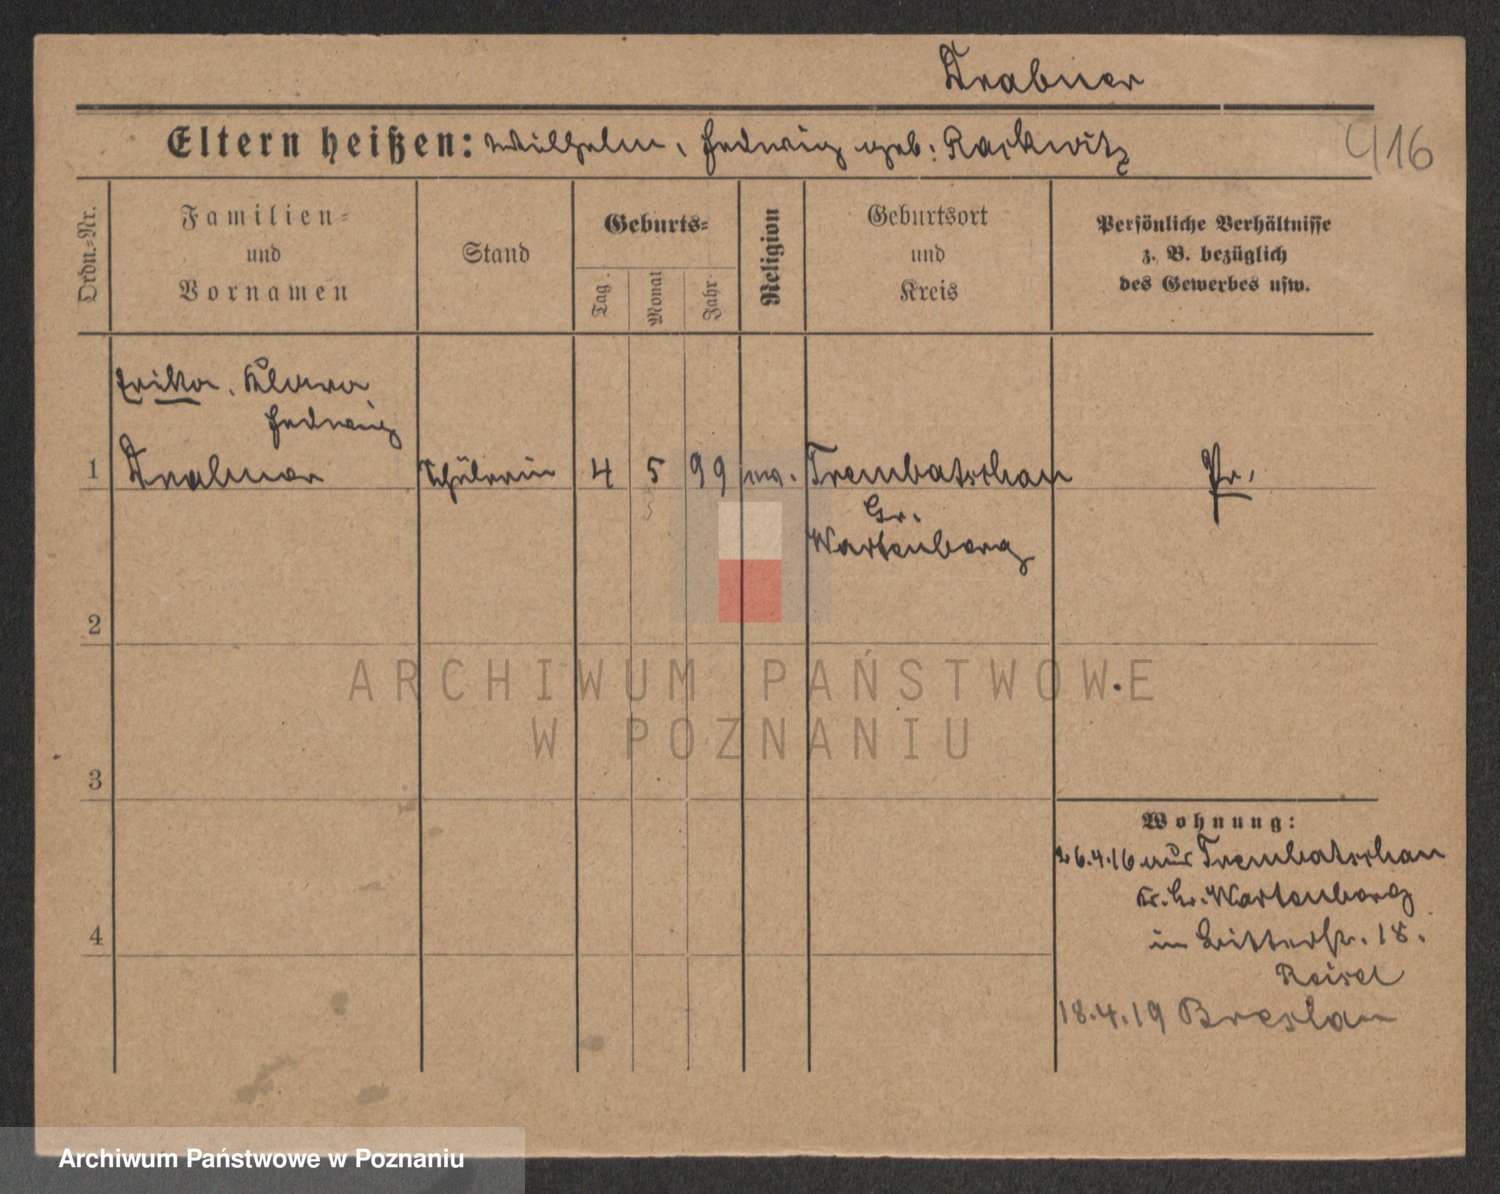 Drabner
Eltern heißen: Wilhelm, Hedwig geb: Rackwitz
416
Ordn.=Nr.
Familien=
und
Vornamen
Stand
Geburts=
Tag.
Monat
Jahr
Religion
Geburtsort
und
Kreis
Persönliche Verhältnisse
z. B. bezüglich
des Gewerbes usw.
Erika, Klara
Hedwig
1 Drabner Schülerin 4 5 99 ev. Trembatschau Pr.
Gr.
Wartenberg
2
3
4
Wohnung:
26.4.16 aus Trembatschau
Kr. Gr. Wartenberg
in Ritterstr. 18.
18.4.19 Breslau
ARCHIWUM PAŃSTWOWE
W POZNANIU
Archiwum Państwowe w Poznaniu